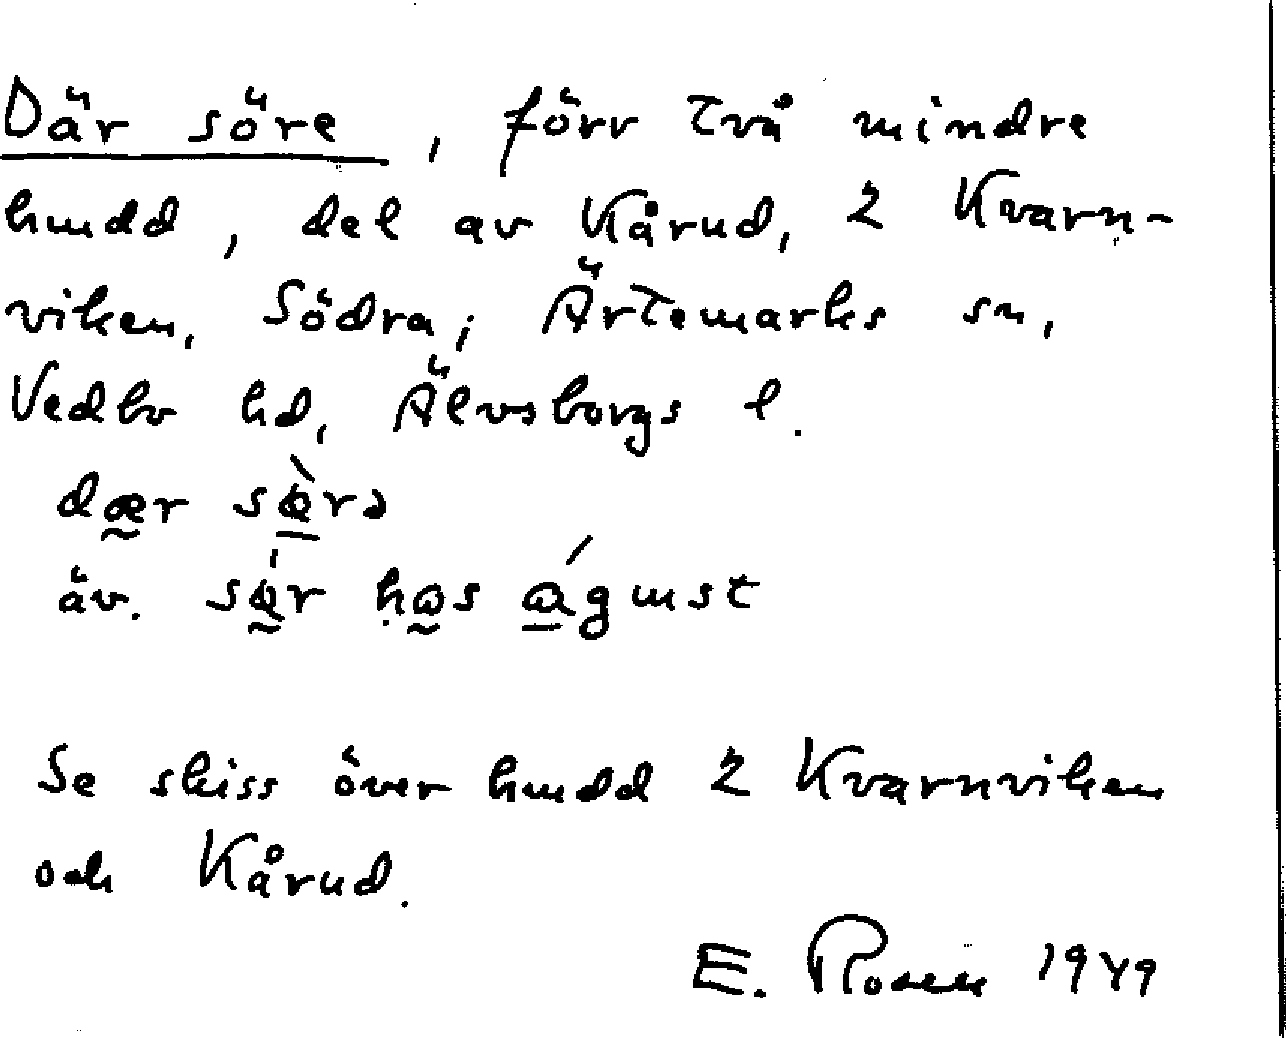 Där söre, förr två mindre
hmdd, del av Kårud, 2 Kvarn-
viken, Södra; Ärtemarks sn,
Vedbo hd, Älvsborgs l.
dær sø̀rə
äv. sø̀r hɷs ɷ́gust
Se skiss över hmdd 2 Kvarnviken
och Kårud.
E. Rosén 1949